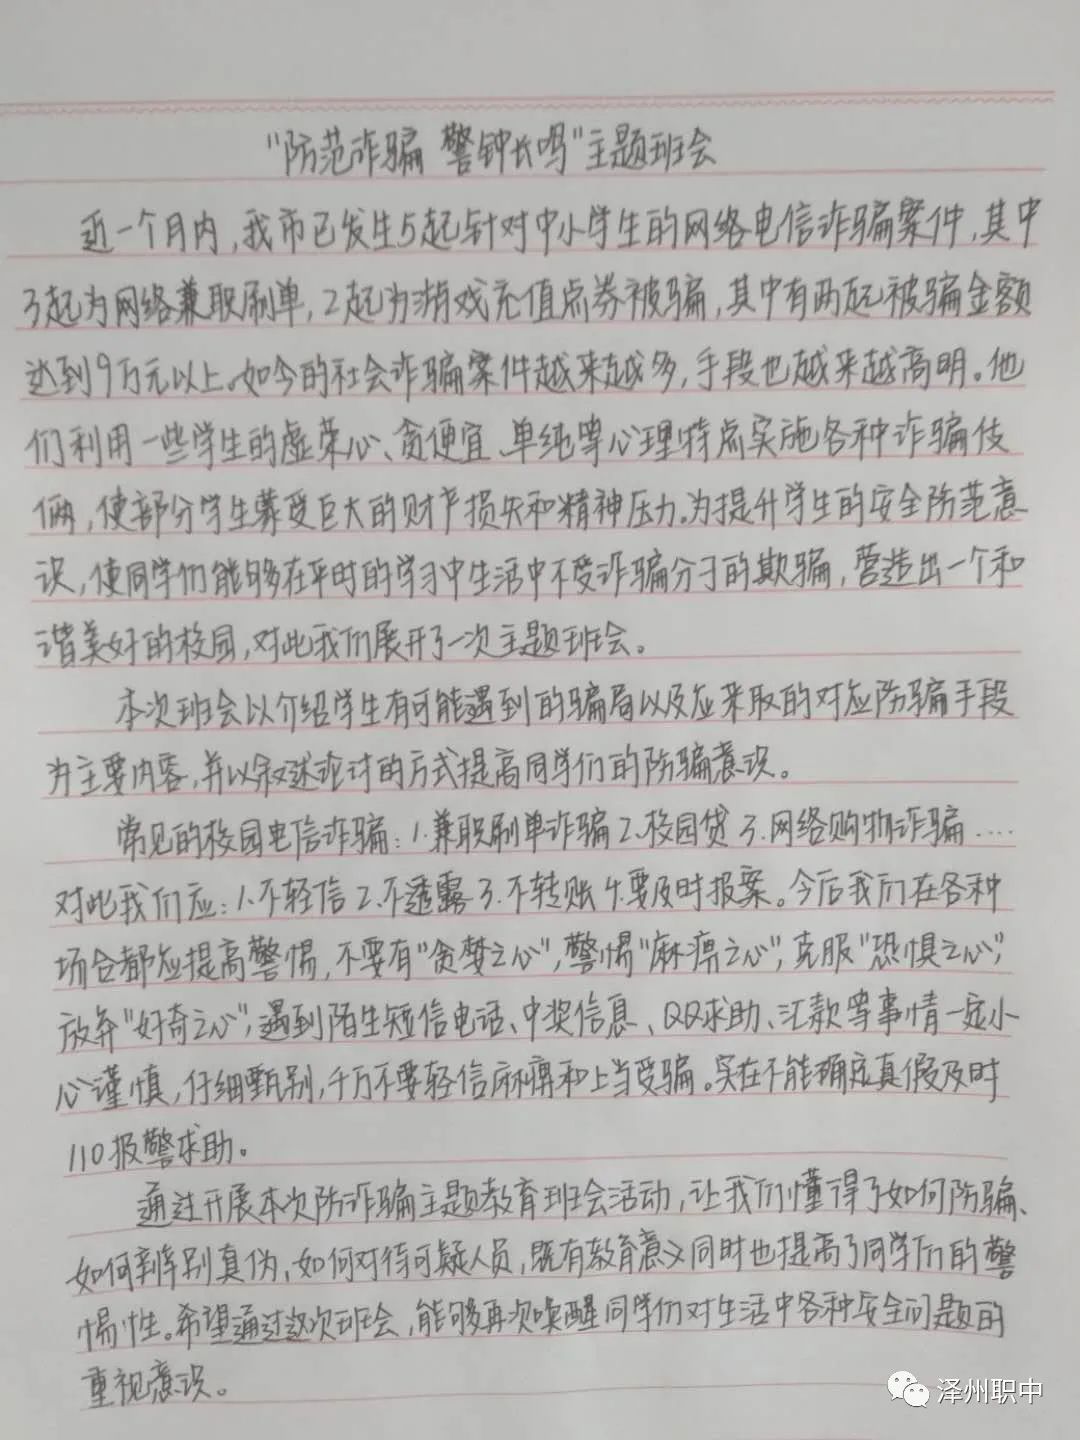 "防范诈骗 警钟长鸣"主题班会
近一个月内,我市已发生5起针对中小学生的网络电信诈骗案件,其中
3起为网络兼职刷单,2起为游戏充值点券被骗,其中有两起被骗金额
达到9万元以上。如今的社会诈骗案件越来越多,手段也越来越高明。他
们利用一些学生的虚荣心、贪便宜、单纯等心理特点实施各种诈骗伎
俩,使部分学生蒙受巨大的财产损失和精神压力。为提升学生的安全防范意
识,使同学们能够在平时的学习中生活中不受诈骗分子的欺骗,营造出一个和
谐美好的校园,对此我们展开了一次主题班会。
本次班会以介绍学生有可能遇到的骗局以及应采取的对应防骗手段
为主要内容,并以叙述论讨的方式提高同学们的防骗意识。
常见的校园电信诈骗:1.兼职刷单诈骗2.校园贷3.网络购物诈骗....
对此我们应:1.不轻信2.不透露3.不转账4.要及时报案。今后我们在各种
场合都应提高警惕,不要有"贪梦之心",警惕"麻痹之心",克服"恐惧之心",
放弃"好奇之心",遇到陌生短信电话、中奖信息、QQ求助、汇款等事情一定小
心谨慎,仔细甄别,千万不要轻信麻痹和上当受骗。实在不能确定真假及时
110报警求助。
通过开展本次防诈骗主题教育班会活动,让我们懂得了如何防骗、
如何辨别真伪、如何对待可疑人员,既有教育意义同时也提高了同学们的警
惕性。希望通过这次班会,能够再次唤醒同学们对生活中各种安全问题的
重视意识。
泽州职中